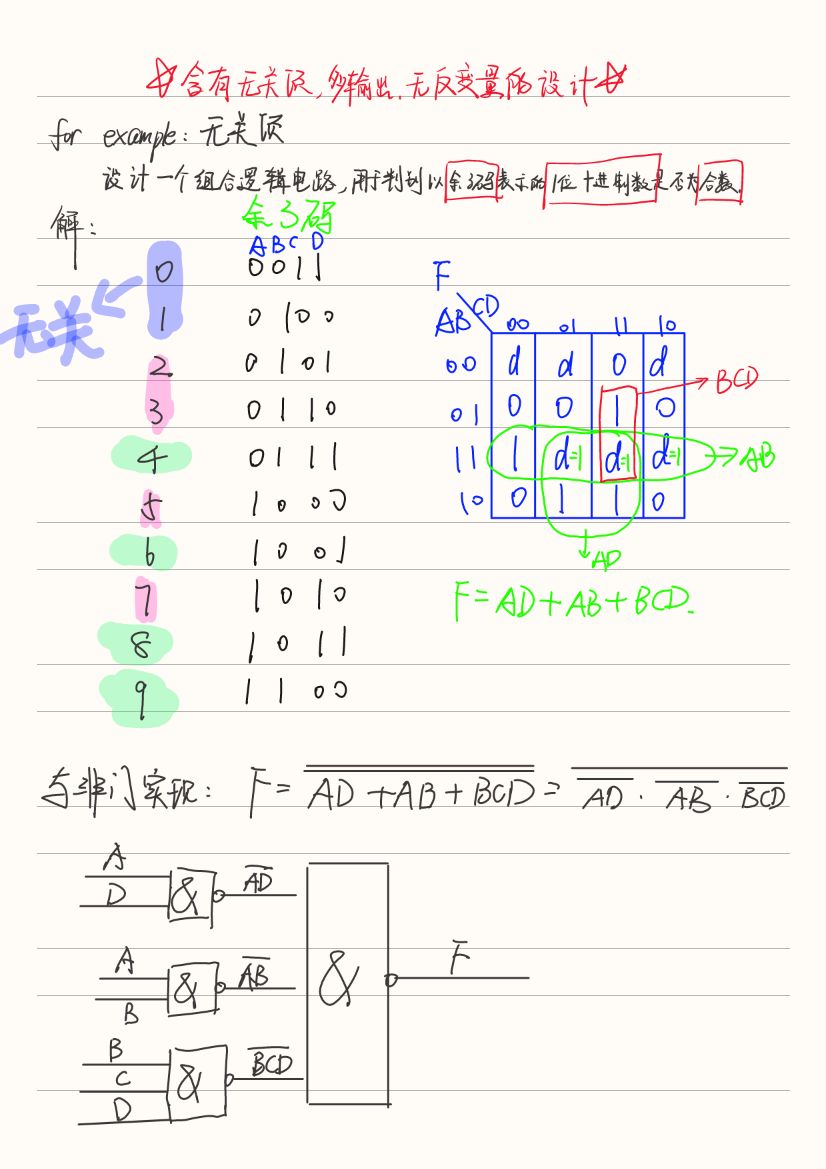 ☆含有无关项,多输出,无反变量的设计☆
for example: 无关项
设计一个组合逻辑电路,用于判别以余3码表示的1位十进制数是否为合数.
解:
余3码
ABCD
0 0011
1 0100
无关
2 0101
3 0110
4 0111
5 1000
6 1001
7 1010
8 1011
9 1100
F
AB CD 00 01 11 10
00 d d 0 d
01 0 0 1 0
11 1 d=1 d=1 d=1
10 0 1 1 0
BCD
AB
AD
F=AD+AB+BCD.
与非门实现: F= \overline{\overline{AD+AB+BCD}} = \overline{\overline{AD}·\overline{AB}·\overline{BCD}}
A
D
& \overline{AD}
A
B
& \overline{AB}
B
C
D
& \overline{BCD}
& F